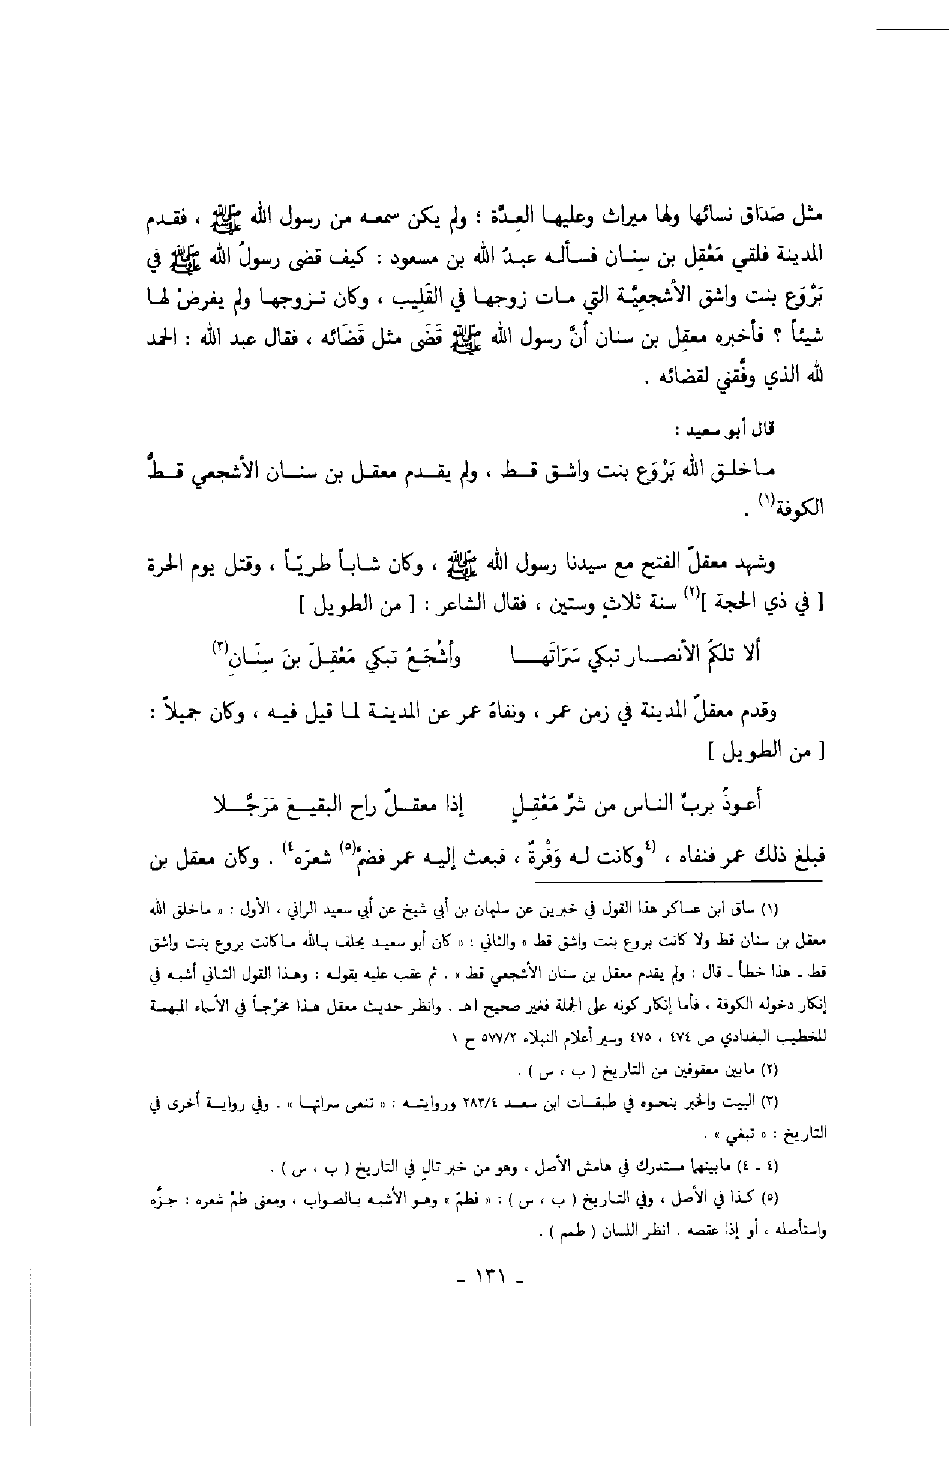 مثل صَدَاق نسائها ولها ميراث وعليها العِدَّة ؛ ولم يكن سمعه من رسول الله ﷺ ، فقدم
المدينة فلقي مَعْقِل بن سِنان فسأله عبدُ الله بن مسعود : كيف قضى رسولُ الله ﷺ في
بَرْوَع بنت واشق الأشجعيّة التي مات زوجها في القَلِيب ، وكان تزوجها ولم يفرضْ لها
شيئاً ؟ فأخبره معقِل بن سنان أنَّ رسول الله ﷺ قَضَى مثل قَضَائه ، فقال عبد الله : الحمد
لله الذي وفَّقني لقضائه .
قال أبو سعيد :
ماخلق الله بَرْوَع بنت واشق قط ، ولم يقدم معقل بن سنان الأشجعي قطُّ
الكوفة(١) .
وشهد معقلٌ الفتح مع سيدنا رسول الله ﷺ ، وكان شاباً طريّاً ، وقتل يوم الحرة
[ في ذي الحجة ](٢) سنة ثلاثٍ وستين ، فقال الشاعر : [ من الطويل ]
ألا تلكُمُ الأنصار تبكي سَرَاتَها وأشْجَعُ تبكي مَعْقِلَ بنَ سِنَانِ(٣)
وقدم معقلٌ المدينة في زمن عمر ، ونفاهُ عمر عن المدينة لما قيل فيه ، وكان جميلاً :
[ من الطويل ]
أعوذُ بربِّ الناس من شرِّ مَعْقِلٍ إذا معقلٌ راح البقيعَ مَرَجَّلا
فبلغ ذلك عمر فنفاه ، (٤وكانت له وَفْرةٌ ، فبعث إليه عمر فضمّ(٥) شعرَه٤) . وكان معقل بن
(١) ساق ابن عساكر هذا القول في خبرين عن سليمان بن أبي شيخ عن أبي سعيد الراني ، الأول : « ماخلق الله
معقل بن سنان قط ولا كانت بروع بنت واشق قط » والثاني : « كان أبو سعيد يحلف بالله ماكانت بروع بنت واشق
قط ـ هذا خطأ ـ قال : ولم يقدم معقل بن سنان الأشجعي قط » . ثم عقب عليه بقوله : وهذا القول الثاني أشبه في
إنكار دخوله الكوفة ، فأما إنكار كونه على الجملة فغير صحيح اهـ . وانظر حديث معقل هذا مخرّجاً في الأسماء المبهمة
للخطيب البغدادي ص ٤٧٤ ، ٤٧٥ وسير أعلام النبلاء ٥٧٧/٢ ح ١
(٢) مابين معقوفين من التاريخ ( ب ، س ) .
(٣) البيت والخبر بنحوه في طبقات ابن سعد ٢٨٣/٤ وروايته : « تنعى سراتها » . وفي رواية أخرى في
التاريخ : « تبغي » .
(٤ ـ ٤) مابينهما مستدرك في هامش الأصل ، وهو من خبر تالٍ في التاريخ ( ب ، س ) .
(٥) كذا في الأصل ، وفي التاريخ ( ب ، س ) : « فطمّ » وهو الأشبه بالصواب ، ومعنى طمّ شعره : جزّه
واستأصله ، أو إذا عقصه . انظر اللسان ( طمم ) .
ـ ١٣١ ـ